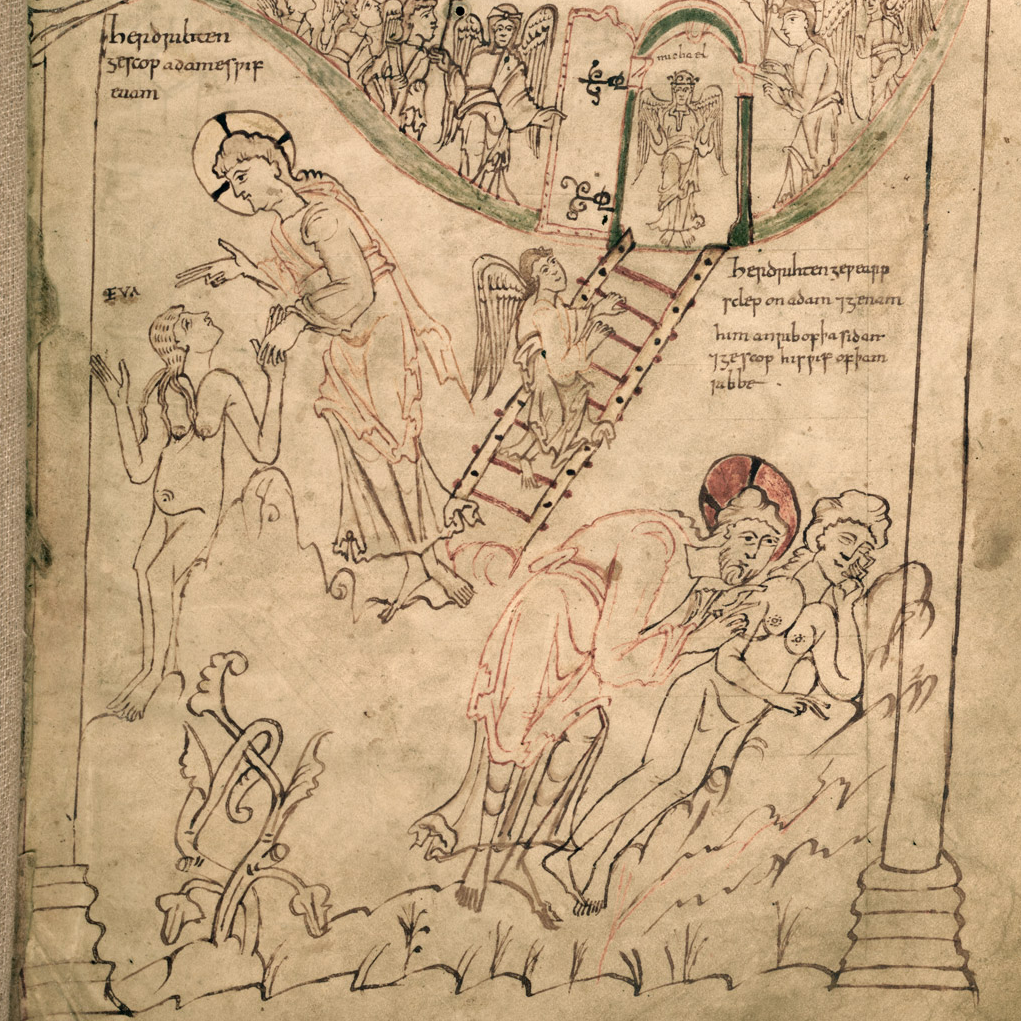 her drihten
gescop adames ƿif
euam
michael
EVA
her drihten geƿearp
sclep on adam ⁊ genam
him an rib of þa sidan
⁊ gescop his ƿif of þam
ribbe